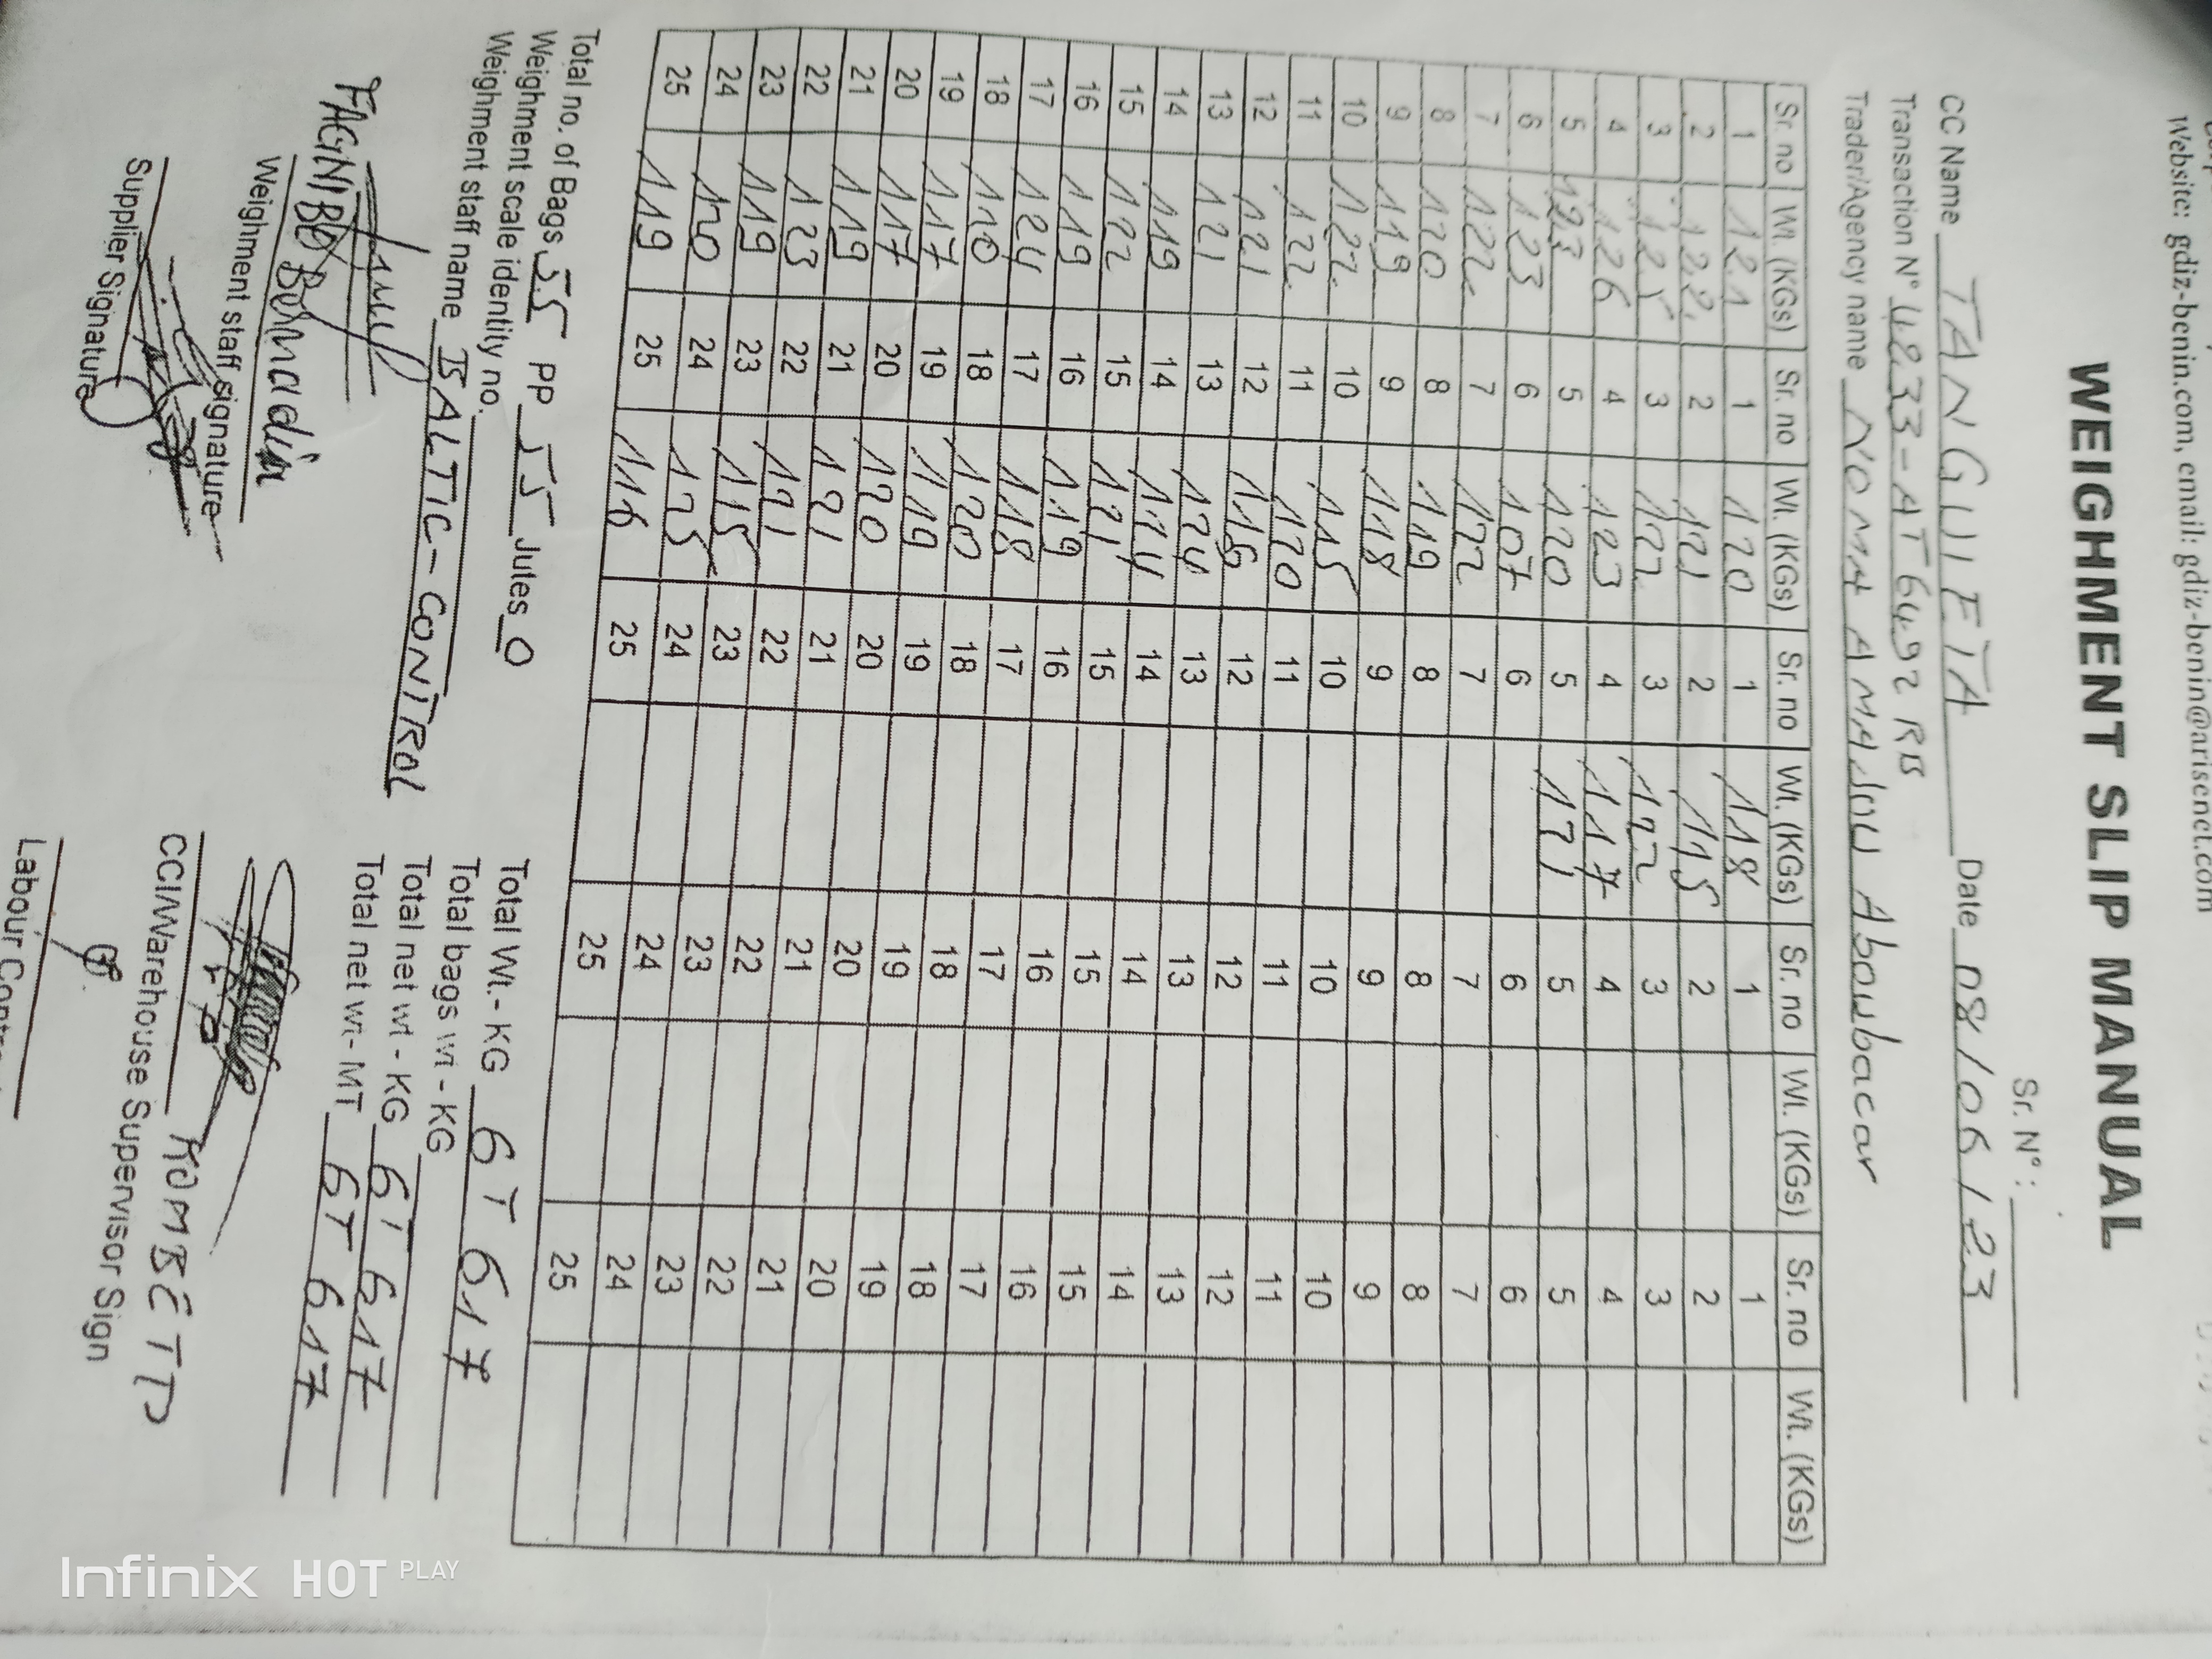 Website: gdiz-benin.com, email: gdiz-benin@arisenet.com
WEIGHMENT SLIP MANUAL
Sr. N°:
CC Name TANGUIETA Date 08/06/23
Transaction N° 4233-AT6492 RB
Trader/Agency name NOMA AMAdou Aboubacar
Sr. no Wt. (KGs) Sr. no Wt. (KGs) Sr. no Wt. (KGs) Sr. no Wt. (KGs) Sr. no Wt. (KGs)
1 121 1 120 1 118 1 1
2 122 2 121 2 115 2 2
3 125 3 122 3 122 3 3
4 126 4 123 4 117 4 4
5 123 5 120 5 121 5 5
6 123 6 107 6 6 6
7 122 7 122 7 7 7
8 120 8 119 8 8 8
9 119 9 118 9 9 9
10 122 10 115 10 10 10
11 122 11 120 11 11 11
12 121 12 116 12 12 12
13 121 13 124 13 13 13
14 119 14 124 14 14 14
15 122 15 121 15 15 15
16 119 16 119 16 16 16
17 124 17 118 17 17 17
18 110 18 120 18 18 18
19 117 19 119 19 19 19
20 117 20 120 20 20 20
21 119 21 121 21 21 21
22 123 22 121 22 22 22
23 119 23 115 23 23 23
24 120 24 125 24 24 24
25 119 25 116 25 25 25
Total no. of Bags 55 PP 55 Jutes 0
Weighment scale identity no.
Weighment staff name BALTIC-CONTROL
Total Wt.- KG 6T 617
Total bags wt - KG
Total net wt - KG 6T 617
Total net wt- MT 6T 617
FAGNIBO Bernadin
Weighment staff signature
Supplier Signature
KOMBETTO
CC/Warehouse Supervisor Sign
Labour
Infinix HOT PLAY